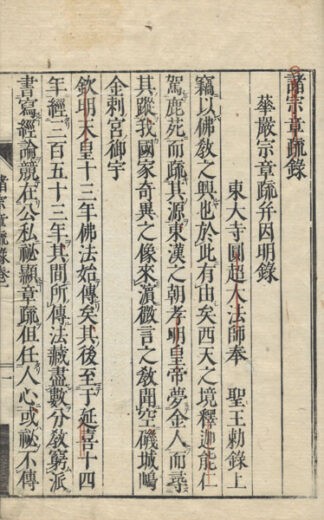 諸宗章疏錄
華嚴宗章疏并因明錄
東大寺圓超大法師奉 聖王勅錄上
竊以佛敎之興也於此有由矣西天之境釋迦能仁
駕鹿苑而疏其源東漢之朝孝明皇帝夢金人而尋
其蹤我國家奇異之像來濱微言之敎聞空磯城嶋
金刺宮御宇
欽明天皇十三年佛法始傳矣其後至于延喜十四
年經三百五十三年其間所傳法藏盡數分敎窮派
書寫經論競在公私祕顯章疏但任人心或祕不傳
諸宗章疏錄卷一